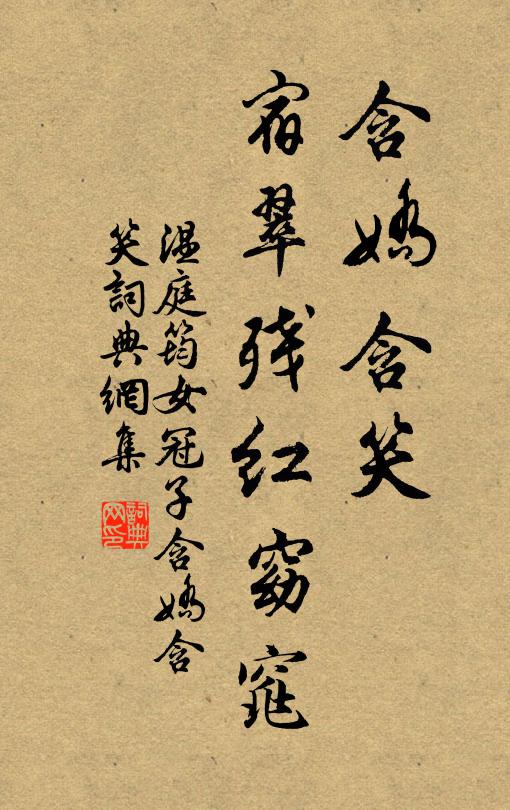 含嬌含笑
宿翠残红窈窕
温庭筠女冠子含嬌含
笑詞典網集
詞典
网印